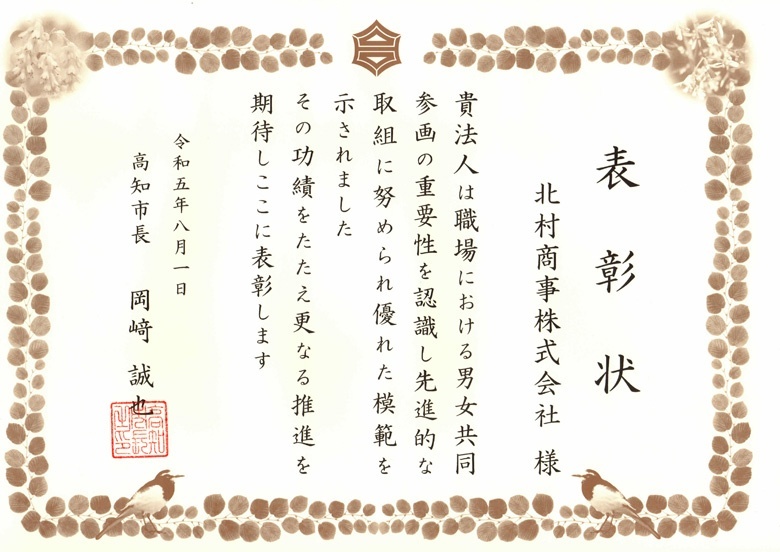 表彰状
北村商事株式会社 様
貴法人は職場における男女共同
参画の重要性を認識し先進的な
取組に努められ優れた模範を
示されました
その功績をたたえ更なる推進を
期待しここに表彰します
令和五年八月一日
高知市長 岡﨑 誠也